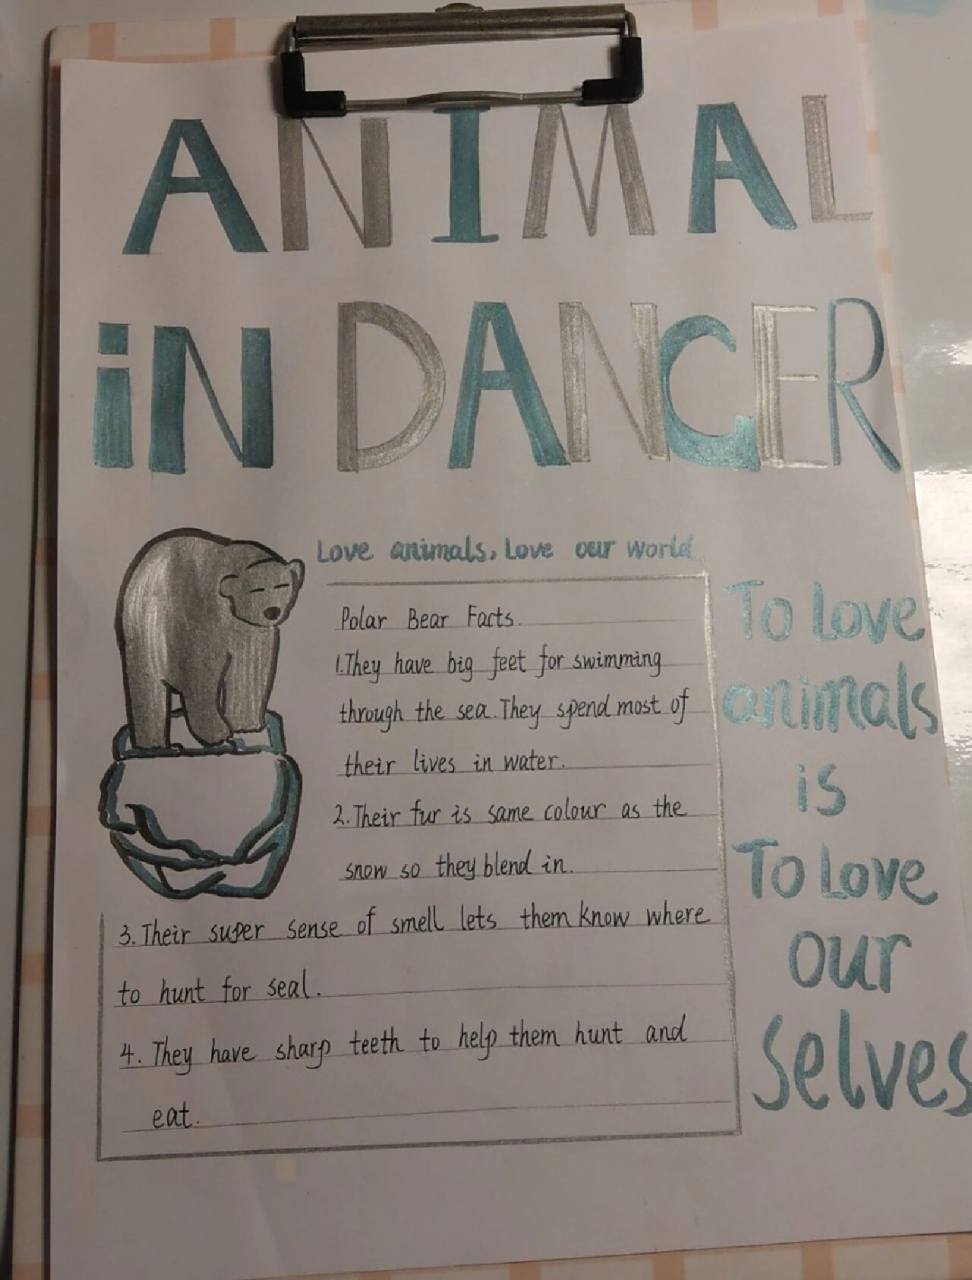 ANIMAL
iN DANGER
Love animals, Love our world
Polar Bear Facts.
1.They have big feet for swimming
through the sea.They spend most of
their lives in water.
2.Their fur is same colour as the
snow so they blend in.
3.Their super sense of smell lets them know where
to hunt for seal.
4. They have sharp teeth to help them hunt and
eat.
To Love
animals
is
To Love
our
selves